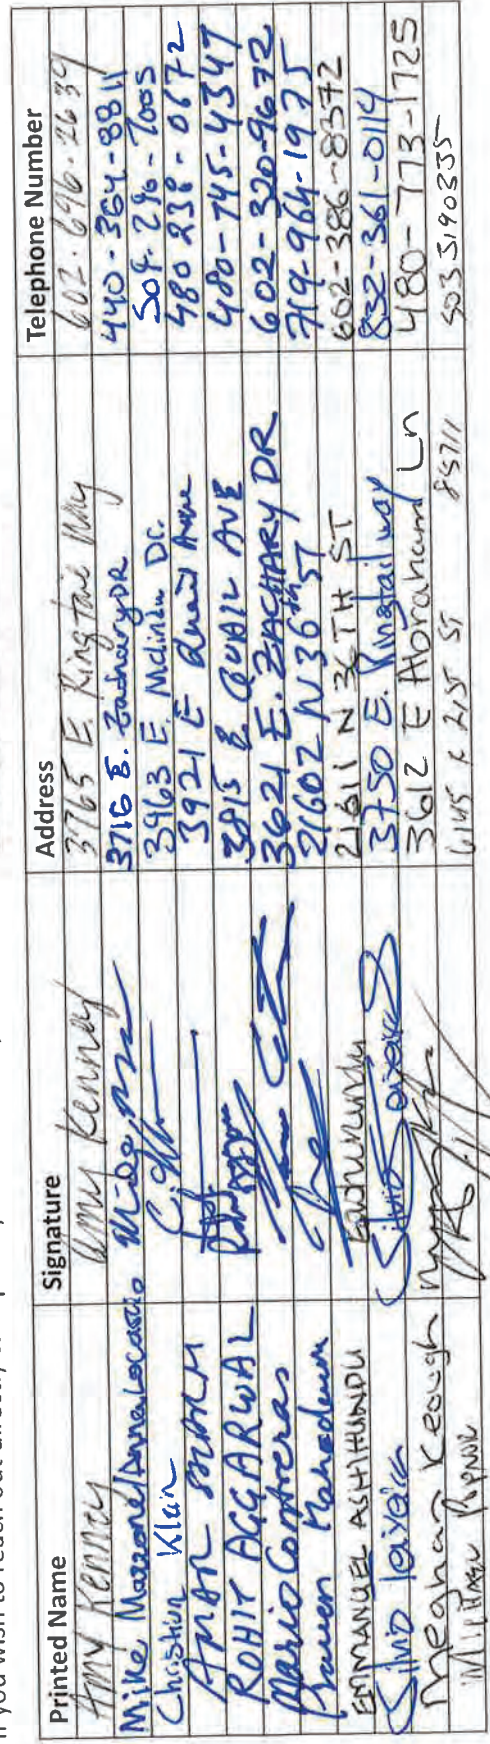 Printed Name Signature Address Telephone Number
Amy Kenney Amy Kenney 3765 E. Ringtail Way 602-696-2639
Mike Mazzone/Anna Locascio 3716 E. Zachary DR 440-364-8811
Christian Klain 3963 E. Melinda Dr. 509-296-7005
AMAR 3921 E Quail Avenue 480 238-0672
ROHIT AGGARWAL 3815 E QUAIL AVE 480-745-4347
Mario Contreras 3621 E. ZACHARY DR 602-320-9672
Praveen Mahadevan 21602 N 36th ST 719-964-1975
EMMANUEL ASHIHUNDU 21611 N 36TH ST 602-386-8372
Silvio Teixeira Silvio Teixeira 3750 E. Ringtail way 832-361-0114
Meghan Keough 3612 E Abraham Ln 480-773-1725
6145 E 21ST ST 85711 503 5190335